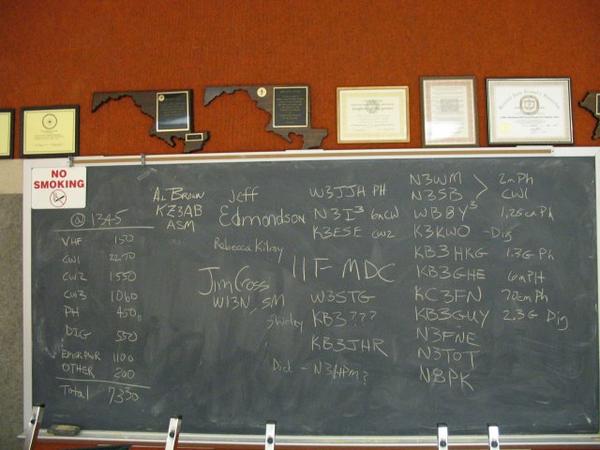 NO
SMOKING
@ 1345
VHF 150
CW1 2270
CW2 1550
CW3 1060
PH 450
DIG 550
EMGRPWR 1100
OTHER 200
Total 7330
AL BROWN
KZ3AB
ASM
Jeff
Edmondson
Rebecca Kilroy
Jim Cross
WI3N SM
Shirley
Dick - N3HPM?
W3JJH PH
N3I³ 6mCW
K3ESE CW2
11F-MDC
W3STG
KB3???
KB3JHR
N3WM > 2mPh
N3SB CW1
WB8Y³ 1.25cm Ph
K3KWO - Dig
KB3HKG 1.3G Ph
KB3GHE 6mPH
KC3FN 70cm Ph
KB3GUY 2.3G Dig
N3FNE
N3TOT
N8PK